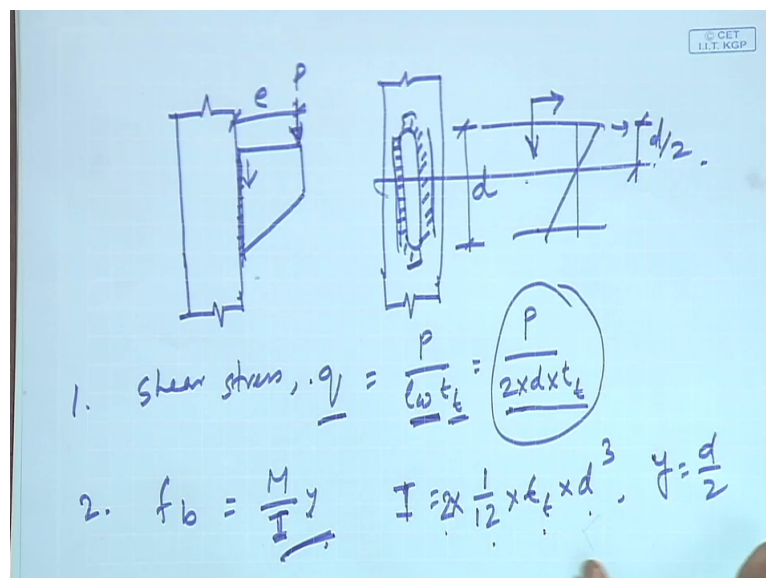 © CET
I.I.T. KGP
e P
d d/2
1. Shear stress, q = P / (lw tt) = P / (2×d×tt)
2. fb = M/I y I = 2× 1/12 × tt × d³. y = d/2